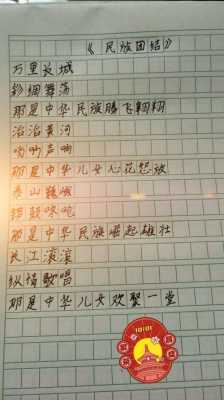 《民族团结》
万里长城
彩绸舞荡
那是中华民族腾飞翱翔
滔滔黄河
唢呐声响
那是中华儿女心花怒放
泰山巍峨
锣鼓咚咚
那是中华民族崛起雄壮
长江滚滚
纵情歌唱
那是中华儿女欢聚一堂
10.01